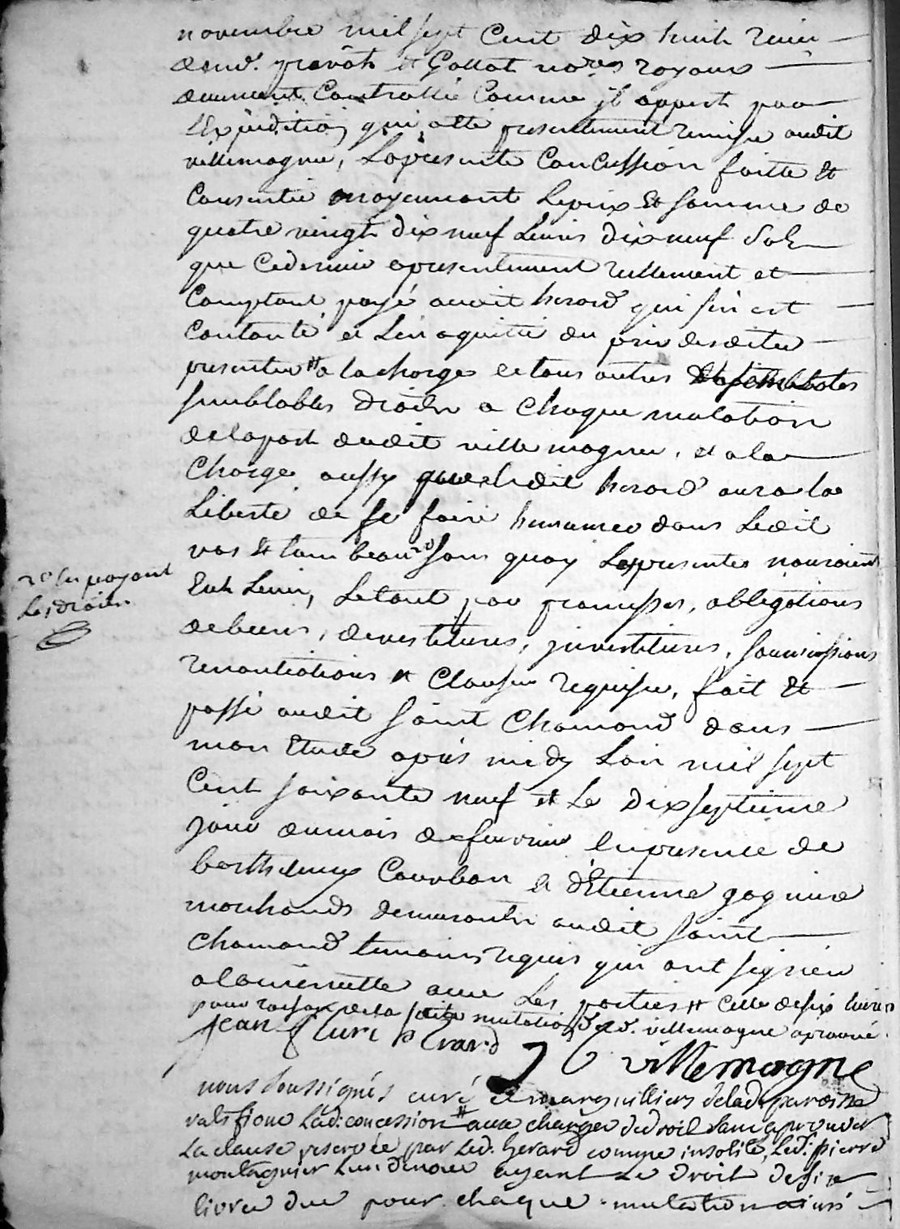 novembre mil sept Cent dix huit
prévôt et Gallot no.res royaux
deument Controllé Comme il appert par
L'expedition qui a été presentement remise audit
villemagne, La presente Concession faitte Et
Consentie moyennant Le prix Et somme de
quatre vingt dix neuf Livres dix neuf Sols
que Ce dernier a presentement reellement et
Comptant payé audit herard qui s'en est
Contanté et L'en a quitté au prix desdites
presentes # a la charge et tous autres
semblables droits a Chaque mutation
de la part dudit villemagne, et a la
Charge aussy que ledit herard aura la
Liberté de se faire Inhumer dans Ledit
vas Et tombeau sans quoy Les presentes n'auroient
r.e en payant
Les droits
Eut Lieu, Le tout par promesses, obligations
de biens, devestitures, investitures, soumissions
renontiations et Clauses requises, fait Et
passé audit Saint Chamond dans
mon Etude après midy L'an mil sept
Cent soixante neuf et Le Dix septieme
jour du mois de fevrier En presence de
barthelemy Courbon et d'Etienne
marchands demeurants audit Saint
Chamond temoins requis qui ont signé
a la minutte avec Les parties # Celle de six livres
pour raison de la ditte mutation villemagne aprouvé.
Jean herard
villemagne
nous Soussignés curé et marguilliers de lad. paroisse
ratifions Lad. concession # aux charges de droit sans aprouver
La clause reservée par Led. Gerard comme insolite, Led. pierre
montagnier L'un de nous ayant Le droit de six
livres due pour chaque mutation ainsi